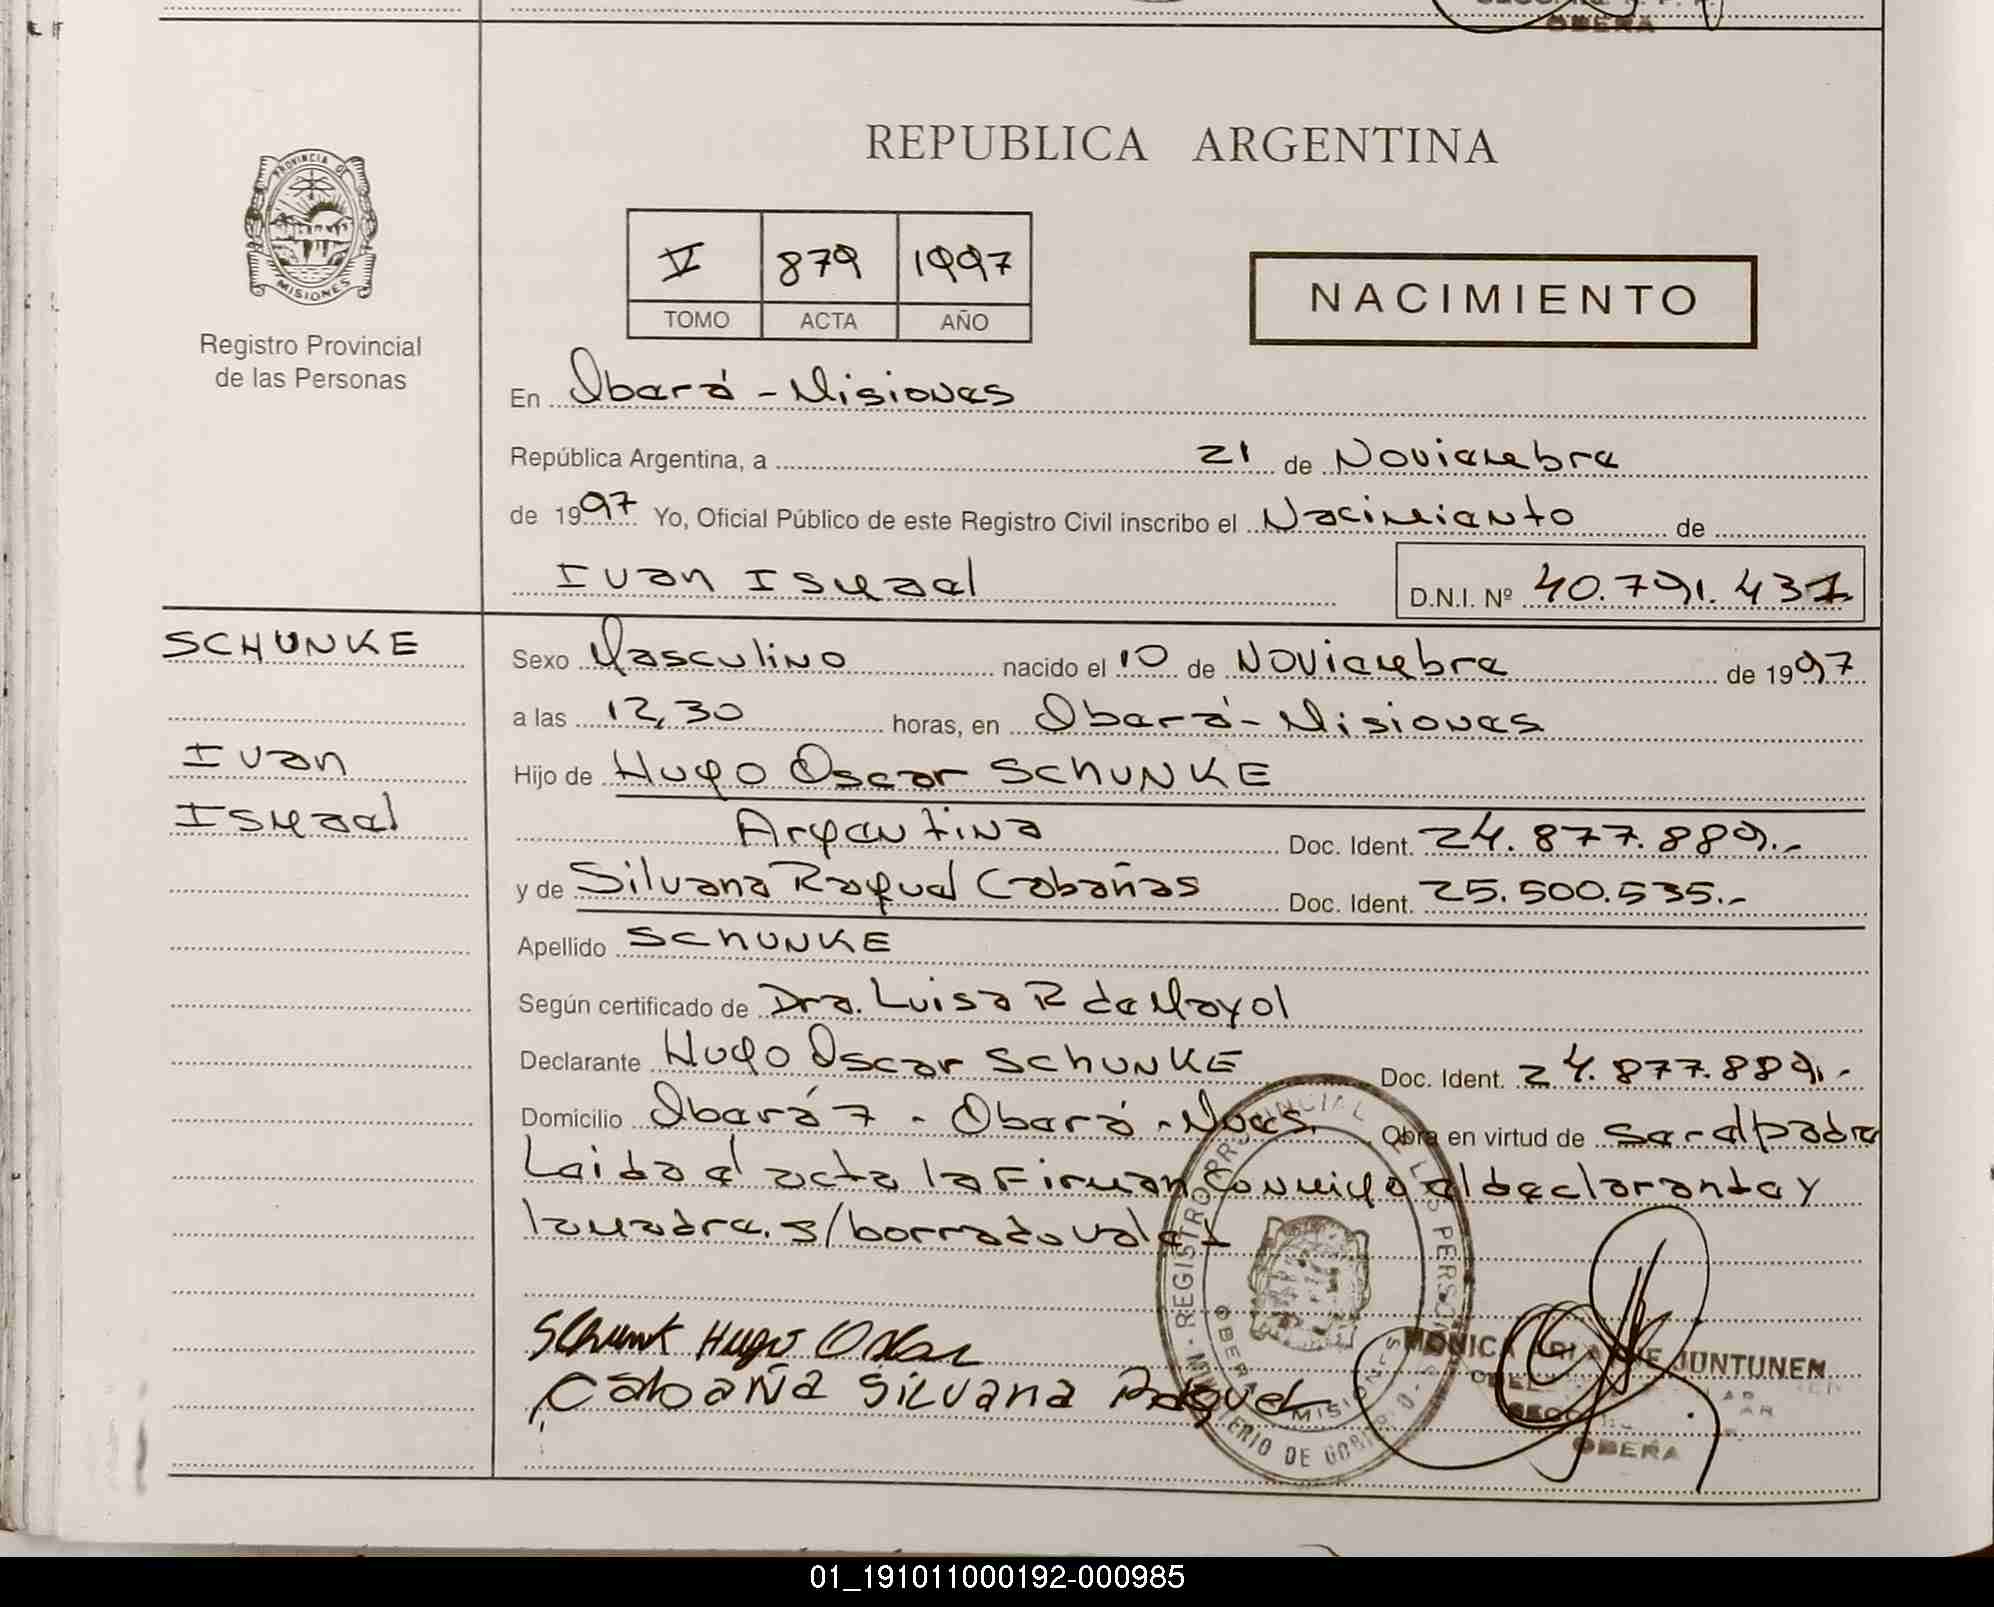 OBERA
REPUBLICA ARGENTINA
PROVINCIA DE
MISIONES
Registro Provincial
de las Personas
V 879 1997
TOMO ACTA AÑO
NACIMIENTO
En Oberá - Misiones
República Argentina, a 21 de Noviembre
de 1997 Yo, Oficial Público de este Registro Civil inscribo el Nacimiento de
Ivan Ismael D.N.I. Nº 40.791.437
SCHUNKE
Ivan
Ismael
Sexo Masculino nacido el 10 de Noviembre de 1997
a las 12,30 horas, en Oberá - Misiones
Hijo de Hugo Oscar SCHUNKE
Argentina Doc. Ident. 24.877.889.-
y de Silvana Raquel Cabañas Doc. Ident. 25.500.535.-
Apellido SCHUNKE
Según certificado de Dra. Luisa R de Mayol
Declarante Hugo Oscar SCHUNKE Doc. Ident. 24.877.889.-
Domicilio Oberá 7 - Oberá - Mnes. Obra en virtud de ser el padre
Leida el acta la Firman conmigo el declarante y
la madre. s/borrado vale 1
Schunk Hugo Oscar
Cabaña Silvana Raquel
REGISTRO PROVINCIAL DE LAS PERSONAS
MINISTERIO DE GOBIERNO
OBERA MISIONES
MONICA DE JUNTUNEN
OBERA
01_191011000192-000985